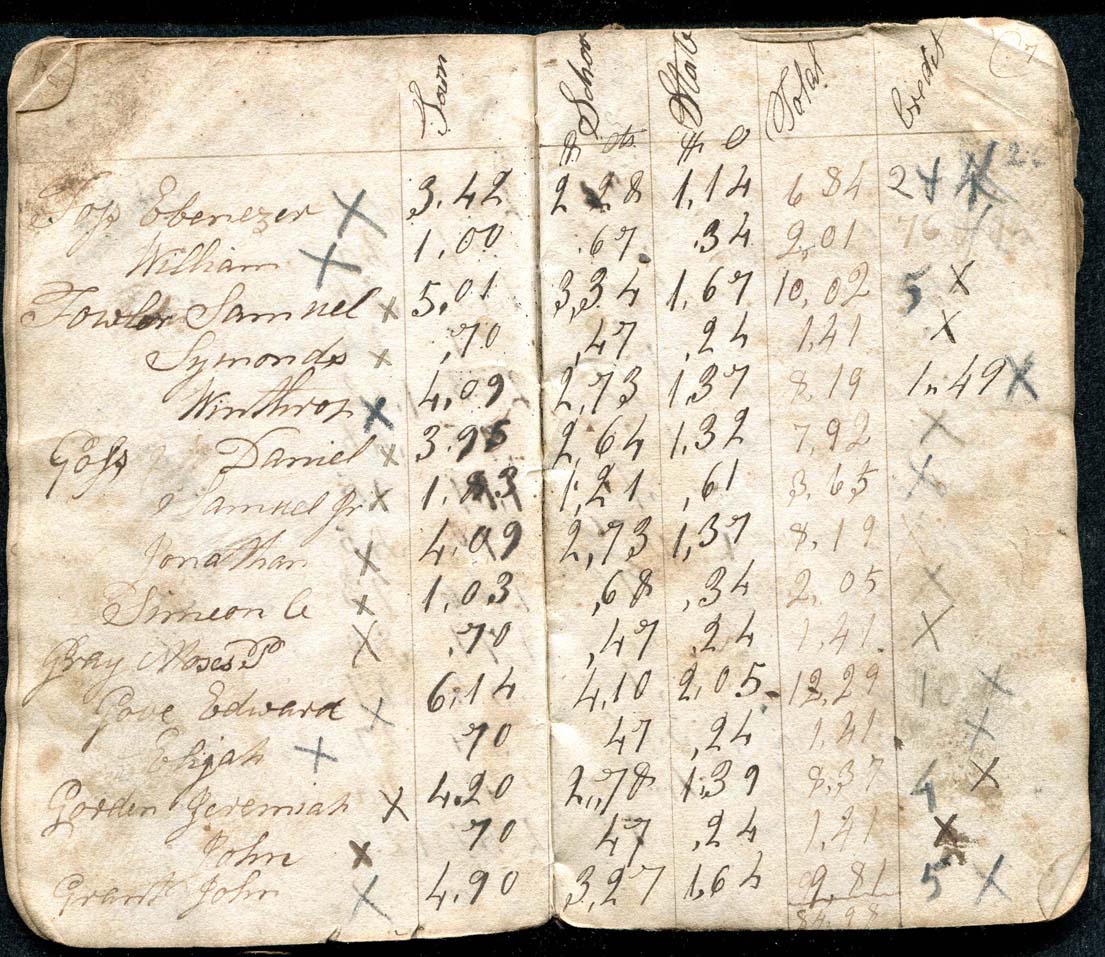 Town School State Total Credit
$ cts $ c
Foss Ebenezer X 3.42 2 28 1,14 6 84 24
William X 1,00 .67 .34 2,01 76
Fowler Samuel X 5,01 3,34 1,67 10,02 5 X
Symonds X ,70 ,47 ,24 1,41 X
Winthrop X 4,09 2,73 1,37 8,19 1,49 X
Goss Daniel X 3.95 2,64 1,32 7,92 X
Samuel Jr X 1.83 1,21 ,61 3,65 X
Jonathan X 4.09 2,73 1,37 8,19 X
Simeon C X 1,03 ,68 ,34 2,05 X
Gray Moses P X ,70 ,47 ,24 1,41 X
Gove Edward X 6,14 4,10 2,05 12,29 X
Elijah X 70 47 ,24 1,41 X
Gorden Jeremiah X 4.20 2,78 1,39 8,37 4 X
John X 70 47 ,24 1,41 X
Grant John X 4,90 3,27 1,64 9,81 5 X
84,98